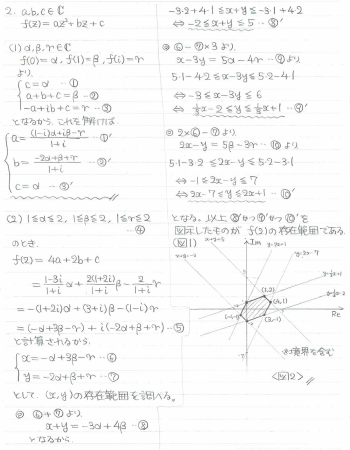 2. a,b,c∈ℂ
f(z)=az²+bz+c
(1) α,β,r∈ℂ
f(0)=α, f(1)=β, f(i)=r
より,
c=α …①
a+b+c=β …②
-a+ib+c=r …③
となるから, これを解けば.
a=((1-i)α+iβ-r)/(1+i) …①'
b=(-2α+β+r)/(1+i) …②'
c=α …③'
(2) 1≦α≦2, 1≦β≦2, 1≦r≦2 …④
のとき,
f(2)=4a+2b+c
=(1-3i)/(1+i) α+2(1+2i)/(1+i) β-2/(1+i) r
=-(1+2i)α+(3+i)β-(1-i)r
=(-α+3β-r)+i(-2α+β+r)…⑤
と計算されるから.
x=-α+3β-r …⑥
y=-2α+β+r …⑦
として, (x,y)の存在範囲を調べる。
◎ ⑥+⑦より,
x+y=-3α+4β …⑧
となるから
-3·2+4·1≦x+y≦-3·1+4·2
⇔ -2≦x+y≦5 …⑧'
◎ ⑥-⑦×3より,
x-3y=5α-4r …⑨より
5·1-4·2≦x-3y≦5·2-4·1
⇔ -3≦x-3y≦6
⇔ 1/3x-2≦y≦1/3x+1 …⑨'
◎ 2×⑥-⑦より
2x-y=5β-3r …⑩より
5·1-3·2≦2x-y≦5·2-3·1
⇔ -1≦2x-y≦7
⇔ 2x-7≦y≦2x+1 …⑩'
となる。以上⑧'かつ⑨'かつ⑩'を
図示したものが f(2)の存在範囲である.
Im
(1,2)
(4,1)
(-1,-1)
(3,-1)
Re
境界を含む
<図2>